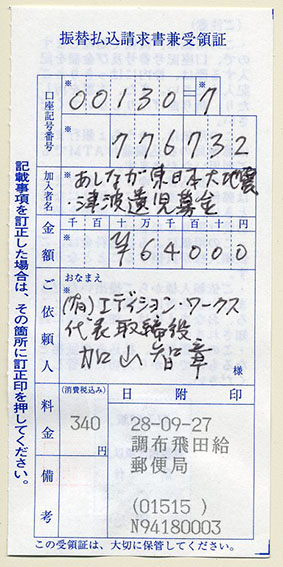 振替払込請求書兼受領証
口座記号番号
※ 00130=7
※ 776732
加入者名
※ あしなが東日本大地震
・津波遺児募金
金額
千 百 十 万 千 百 十 円
※ ¥64000
ご依頼人
おなまえ
※ (有)エディション・ワークス
代表取締役
加山智章
様
料金
(消費税込み)
340
円
日附印
28-09-27
調布飛田給
郵便局
(01515)
N94180003
備考
この受領証は、大切に保管してください。
記載事項を訂正した場合は、その箇所に訂正印を押してください。